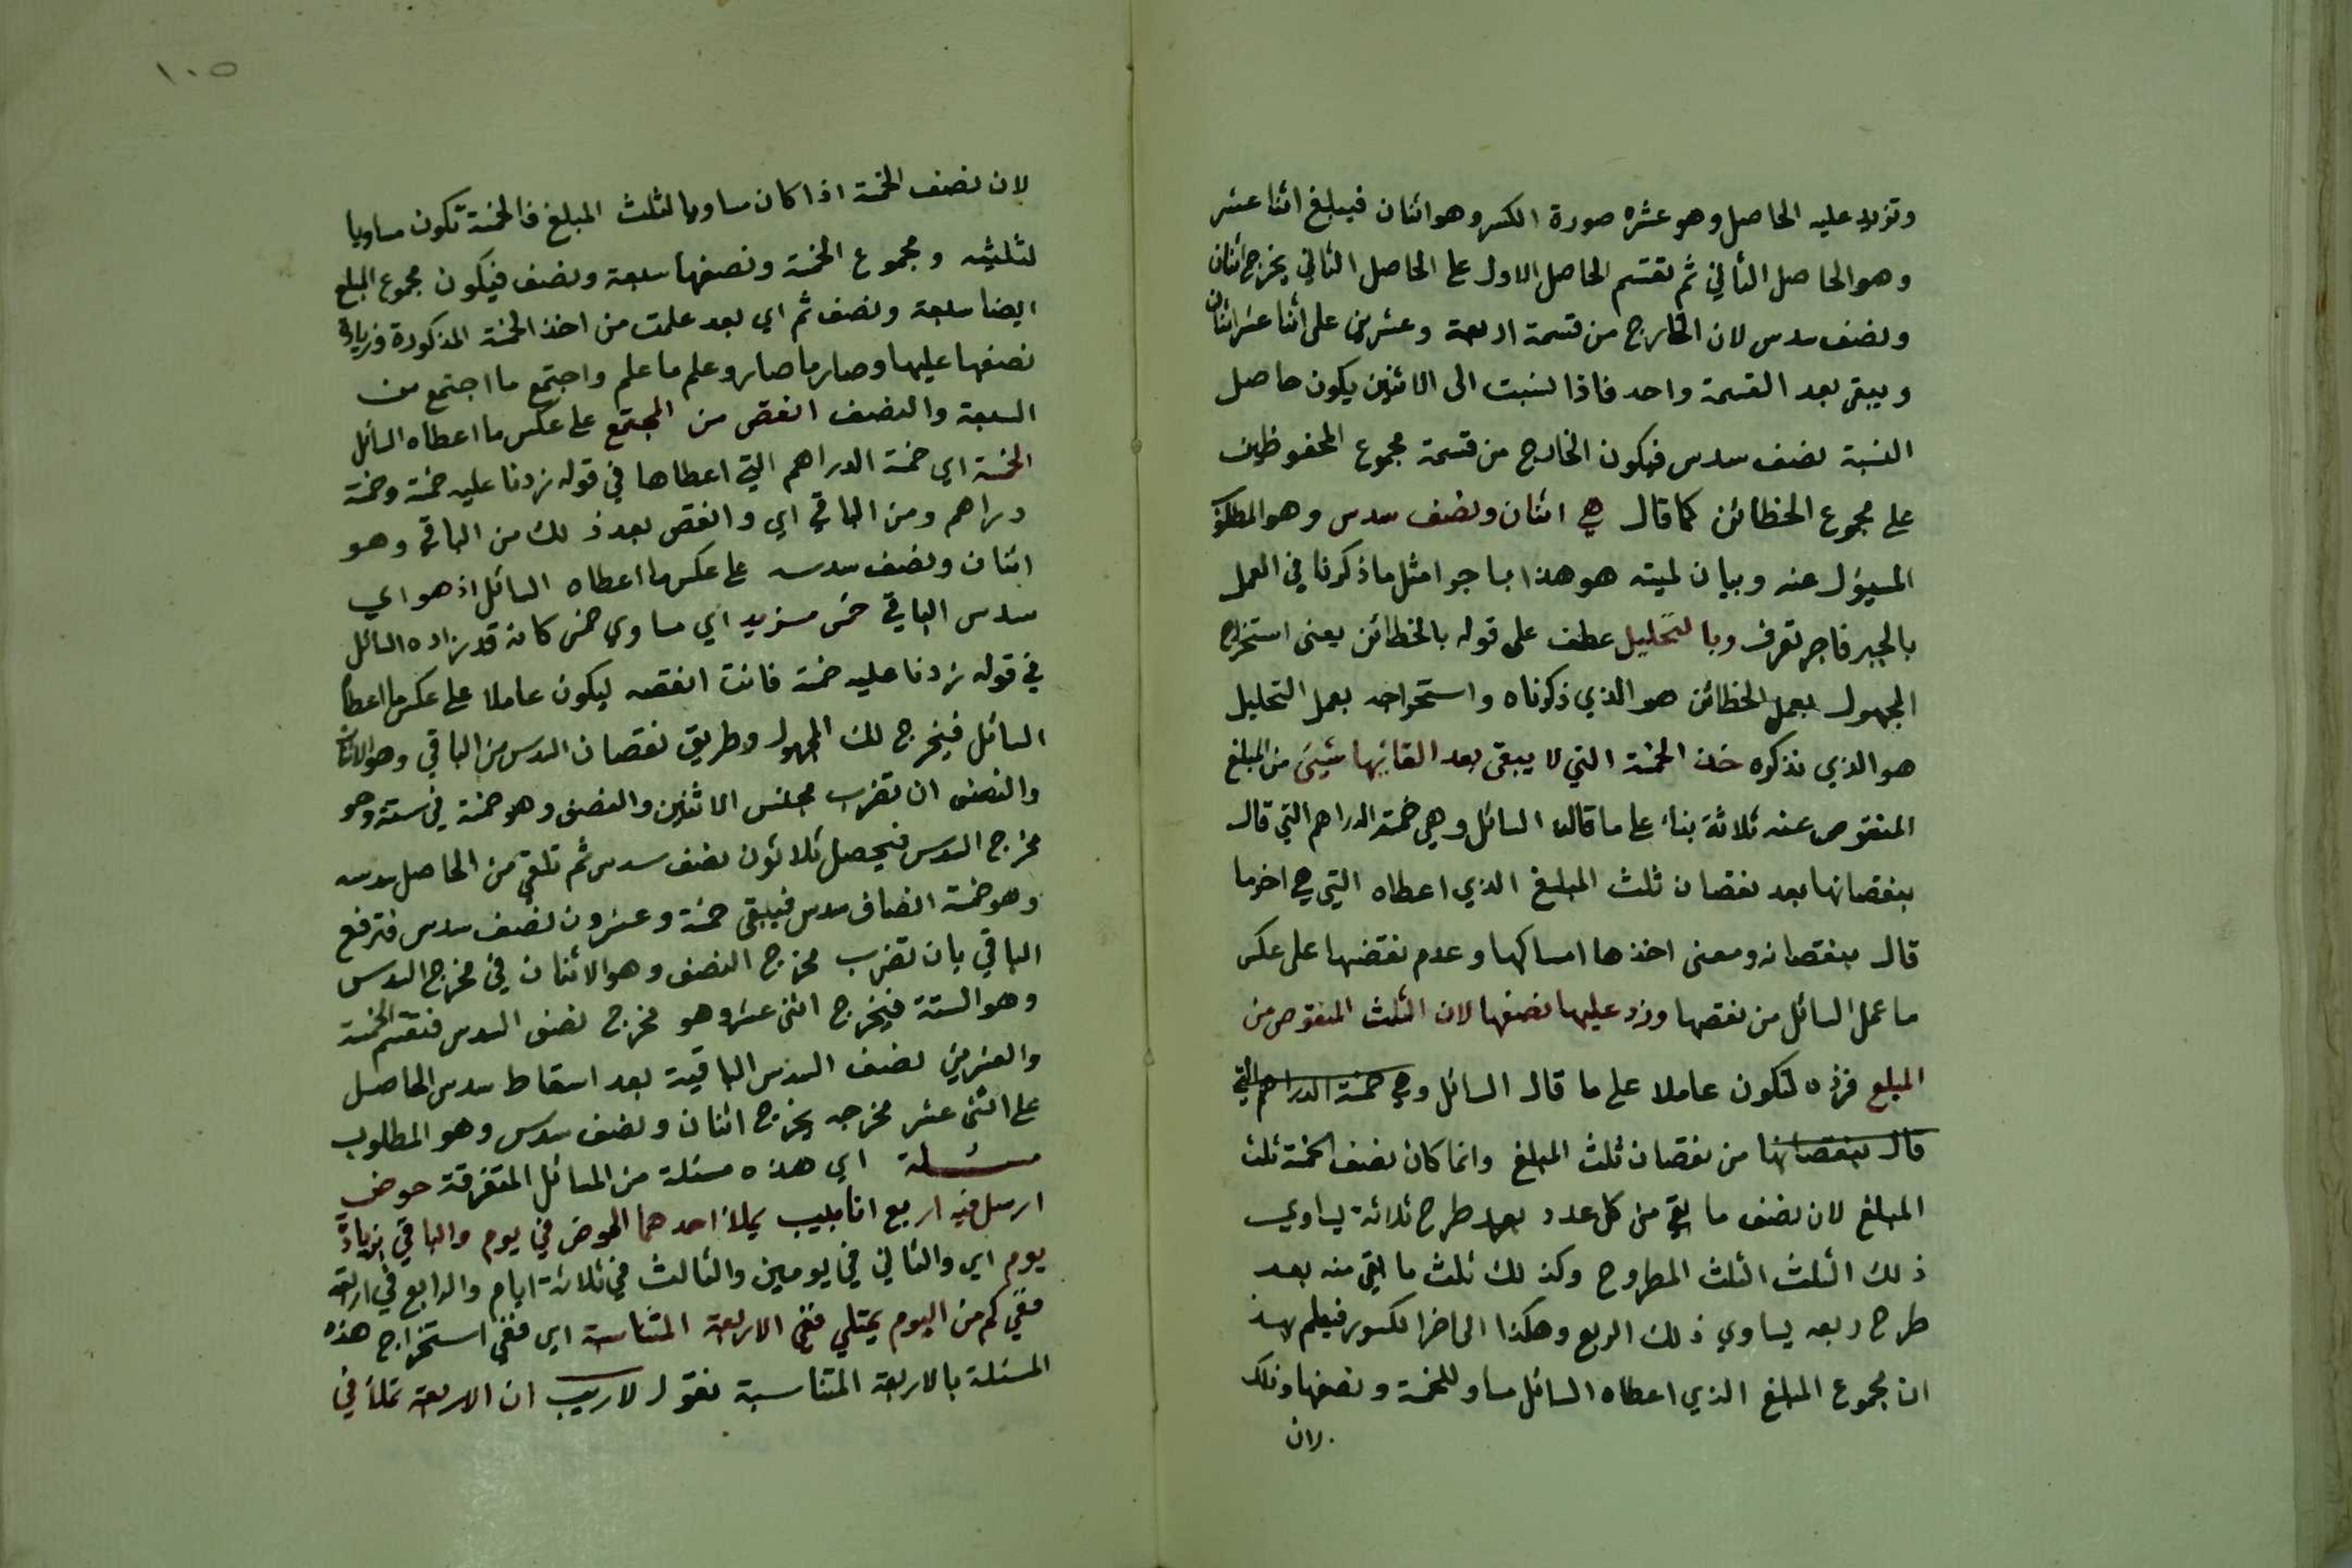 وتزيد عليه الحاصل وهو عشرة صورة الكسر وهو اثنان فيبلغ اثنا عشر
وهو الحاصل الثاني ثم تقسم الحاصل الاول على الحاصل الثاني يخرج اثنان
ونصف سدس لان الخارج من قسمة اربعة وعشرين على اثنا عشر اثنان
ويبقى بعد القسمة واحد فاذا نسبت الى الاثنين يكون حاصل
النسبة نصف سدس فيكون الخارج من قسمة مجموع المحفوظين
على مجموع الخطائن كما قال هي اثنان ونصف سدس وهو المطلوب
المسؤل عنه وبيان لميته هو هذا باجوا مثل ما ذكرنا في العمل
بالجبر فاجر تعرف وبالتحليل عطف على قوله بالخطائن يعنى استخراج
المجهول بعمل الخطائن هو الذي ذكرناه واستخراجه بعمل التحليل
هو الذي نذكره خذ الخمسة التي لا يبقى بعد القائها شيئ من المبلغ
المنقوص عنه ثلاثة بناء على ما قاله السائل وهي خمسة الدراهم التي قال
بنقصانها بعد نقصان ثلث المبلغ الذي اعطاه التي هي اخر ما
قال بنقصانه ومعنى اخذها امساكها وعدم نقصها على عكس
ما عمل السائل من نقصها وزد عليها نصفها لان الثلث المنقوص من
المبلغ فزده لتكون عاملا على ما قال السائل وهي خمسة الدراهم التي
قال بنقصانها من نقصان ثلث المبلغ وانما كان نصف الخمسة ثلث
المبلغ لان نصف ما بقي من كل عدد بعد طرح ثلاثة يساوي
ذلك الثلث الثلث المطروح وكذلك ثلث ما بقي منه بعد
طرح ربعه يساوي ذلك الربع وهكذا الى اخر الكسور فيعلم بهذ
ان مجموع المبلغ الذي اعطاه السائل مساو للخمسة ونصفها وذلك
لان
١٠٥
لان نصف الخمسة اذا كان مساويا لثلث المبلغ فالخمسة تكون مساويا
لثلثيه ومجموع الخمسة ونصفها سبعة ونصف فيكون مجموع المبلغ
ايضا سبعة ونصف ثم اي بعد علمت من اخذ الخمسة المذكورة وزيادة
نصفها عليها وصار ما صار وعلم ما علم واجتمع ما اجتمع من
السبعة والنصف انقص من المجتمع على عكس ما اعطاه السائل
الخمسة اي خمسة الدراهم التي اعطاها في قوله زدنا عليه خمسة وخمسة
دراهم ومن الباقي اي وانقص بعد ذلك من الباقي وهو
اثنان ونصف سدسه على عكس ما اعطاه السائل اذ هو اي
سدس الباقي خمس مزيد اي مساوي خمس كانه قد زاده السائل
في قوله زدنا عليه خمسة فانت انقصه ليكون عاملا على عكس ما اعطاه
السائل فيخرج لك المجهول وطريق نقصان السدس من الباقي وهو الاثنان
والنصف ان تضرب مجنس الاثنين والنصف وهو خمسة في ستة وهو
مخرج السدس فيحصل ثلاثون نصف سدس ثم تلقي من الحاصل سدسه
وهو خمسة انصاف سدس فيبقى خمسة وعشرون نصف سدس فترفع
الباقي بان تضرب مخرج النصف وهو الاثنان في مخرج السدس
وهو الستة فيخرج اثنى عشر وهو مخرج نصف السدس فتقسم الخمسة
والعشرين نصف السدس الباقية بعد اسقاط سدس الحاصل
على اثنى عشر مخرجه يخرج اثنان ونصف سدس وهو المطلوب
مسئلة اي هذه مسئلة من المسائل المتفرقة حوض
ارسل فيه اربع انابيب يملأ احدهما الحوض في يوم والباقي بزيادة
يوم اي والثاني في يومين والثالث في ثلاثة ايام والرابع في اربعة
ففي كم من اليوم يمتلي ففي الاربعة المتناسبة اي ففي استخراج هذه
المسئلة بالاربعة المتناسبة نقول لاريب ان الاربعة تملأ في